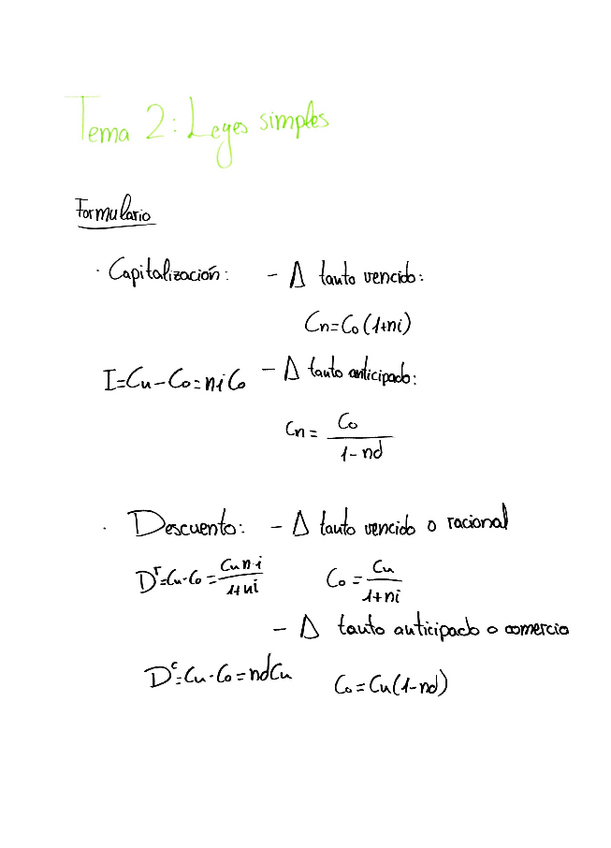 Tema 2: Leyes simples
Formulario
· Capitalización: - Δ tanto vencido:
Cn=Co(1+ni)
I=Cn-Co=niCo - Δ tanto anticipado:
Cn = Co / 1-nd
· Descuento: - Δ tanto vencido o racional
Dʳ=Cn-Co = Cn n·i / 1+ni Co = Cn / 1+ni
- Δ tanto anticipado o comercio
Dᶜ=Cn-Co=ndCn Co=Cn(1-nd)